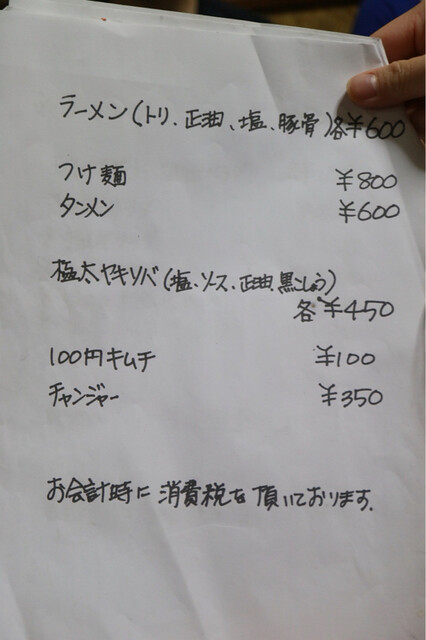 ラーメン(トリ、正油、塩、豚骨)各¥600
つけ麺 ¥800
タンメン ¥600
極太ヤキソバ(塩、ソース、正油、黒こしょう)
各¥450
100円キムチ ¥100
チャンジャー ¥350
お会計時に消費税を頂いております。